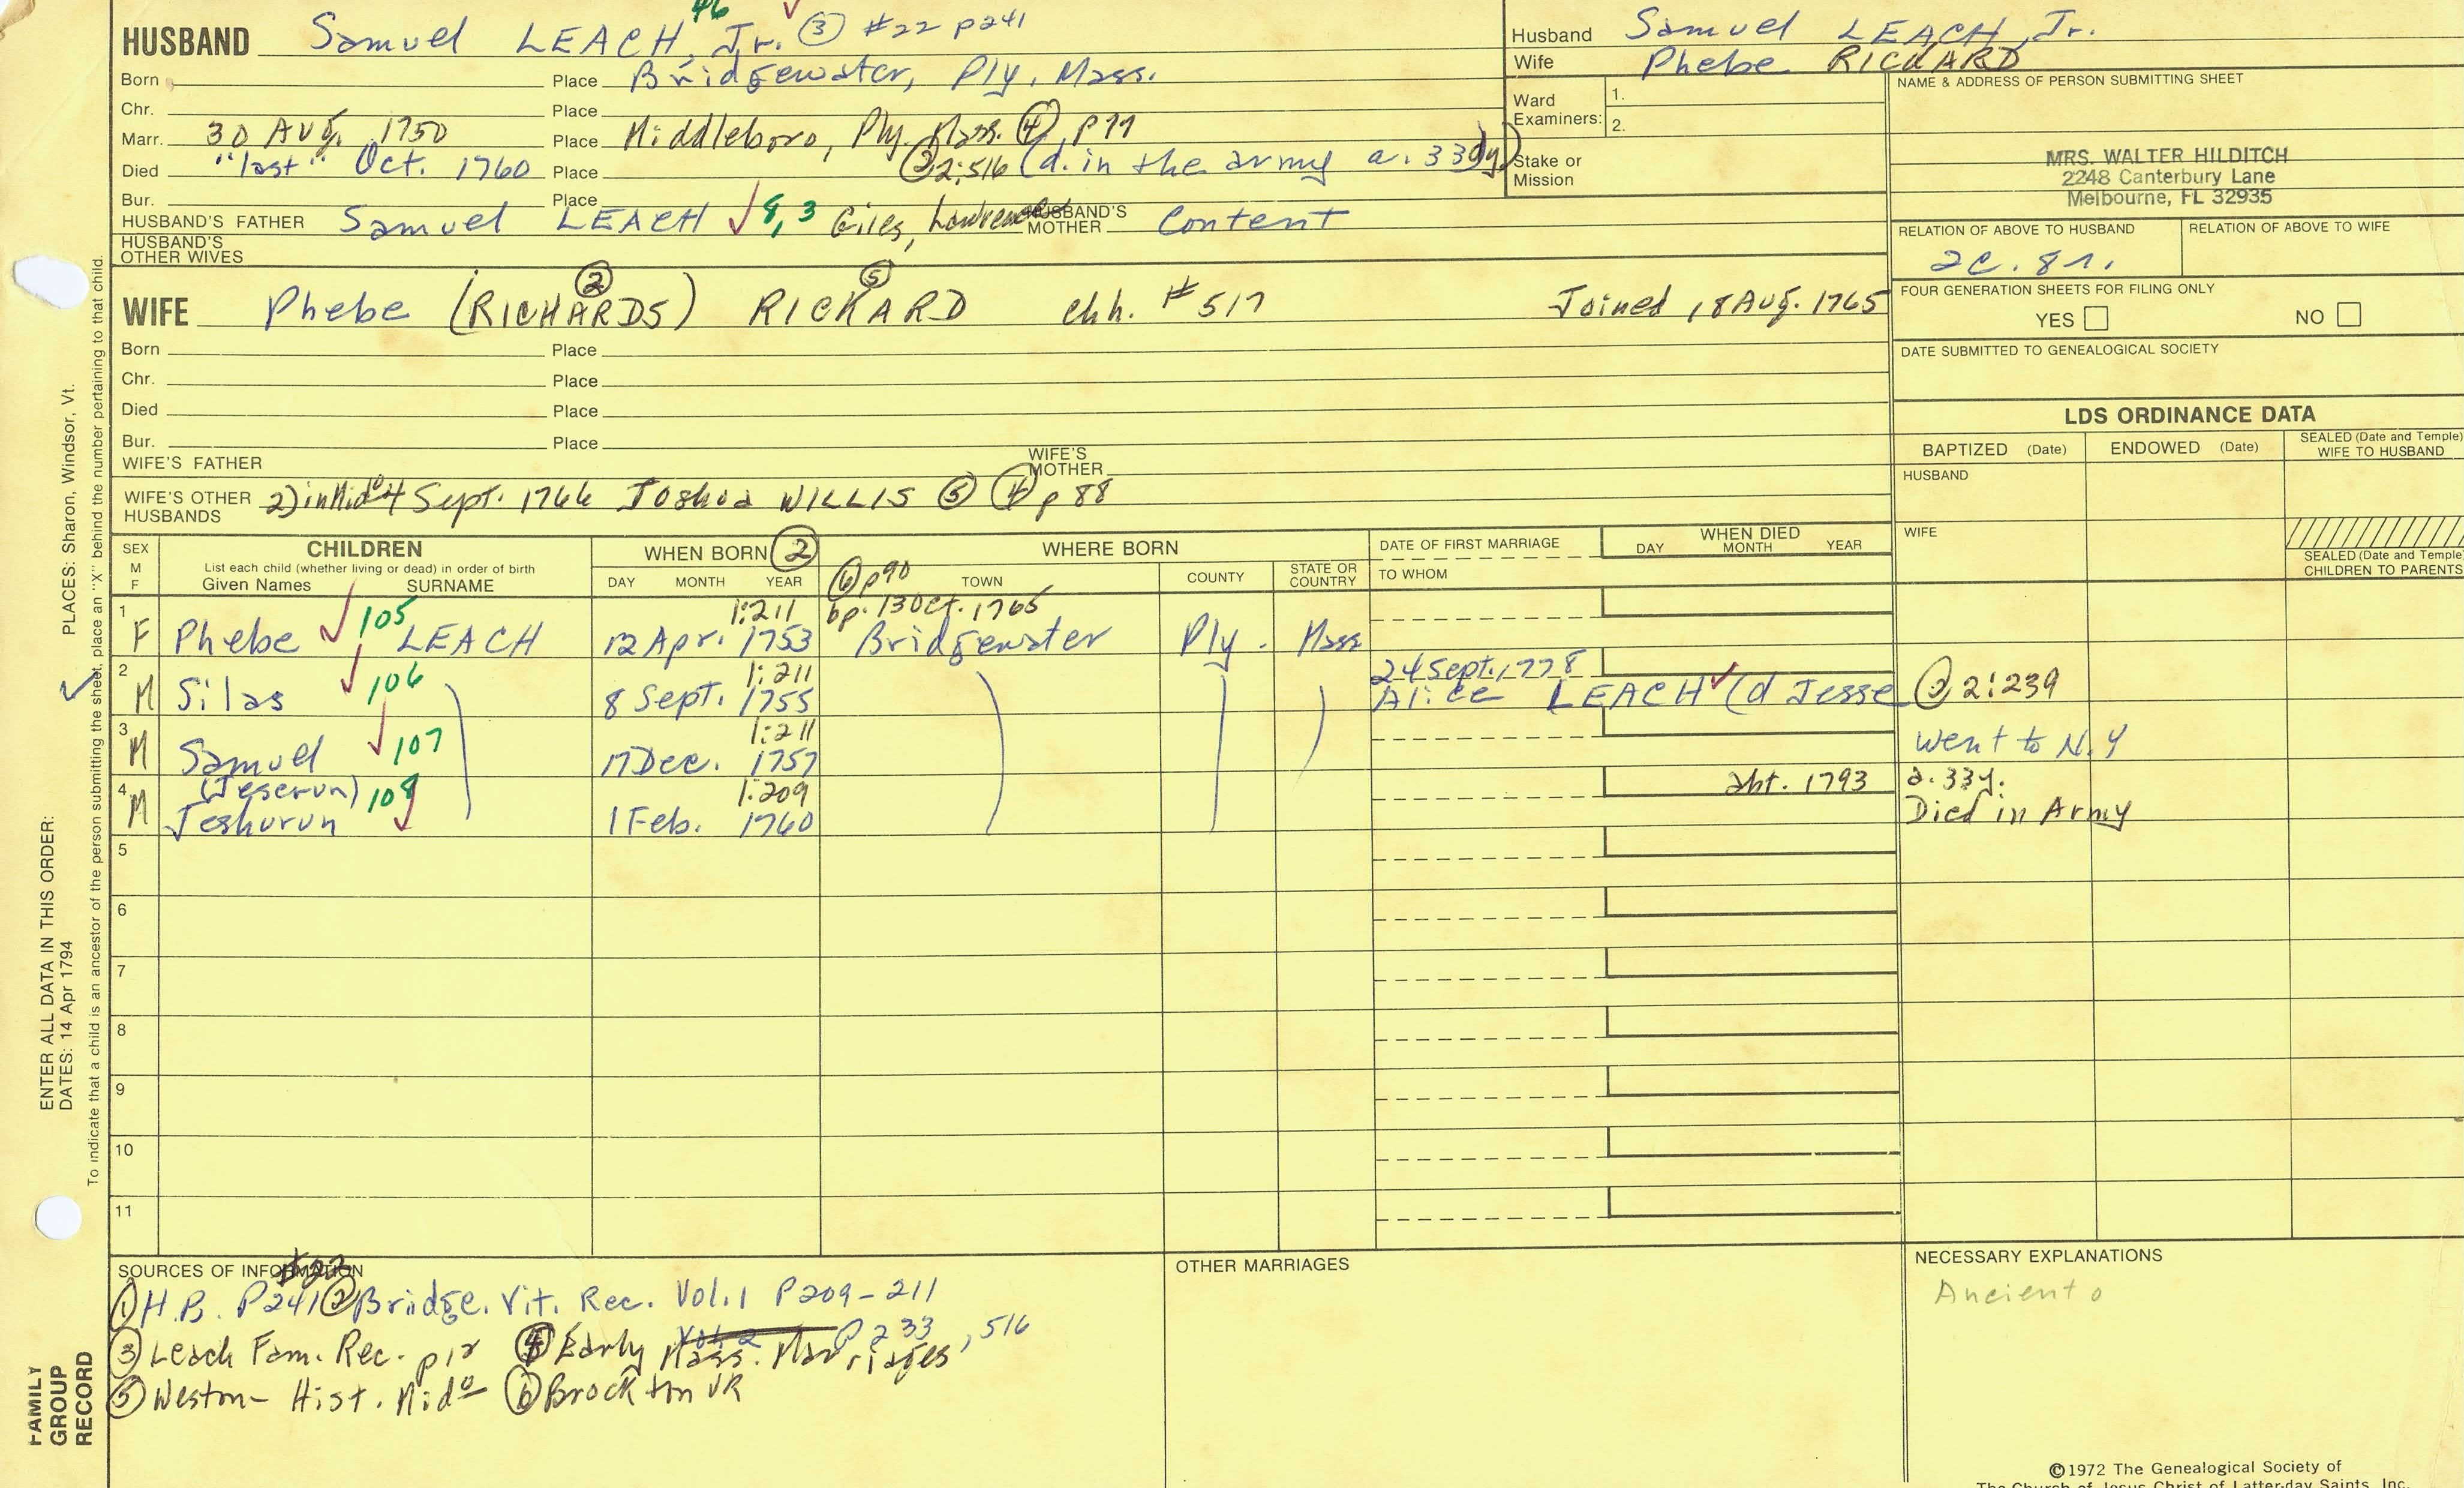 46
HUSBAND Samuel LEACH, Jr. ③ #22 p241
Born Place Bridgewater, Ply. Mass.
Chr. Place
Marr. 30 Aug. 1750 Place Middleboro, Ply. Mass. ④, p77
Died "last" Oct. 1760 Place ②2:516 (d. in the army a. 33y)
Bur. Place
HUSBAND'S FATHER Samuel LEACH 8, 3 Giles, Lawrence HUSBAND'S MOTHER Content
HUSBAND'S OTHER WIVES
Husband Samuel LEACH, Jr.
Wife Phebe RICKARD
Ward Examiners: 1.
2.
Stake or Mission
NAME & ADDRESS OF PERSON SUBMITTING SHEET
MRS. WALTER HILDITCH
2248 Canterbury Lane
Melbourne, FL 32935
RELATION OF ABOVE TO HUSBAND RELATION OF ABOVE TO WIFE
2c. 8r.
FOUR GENERATION SHEETS FOR FILING ONLY
YES NO
DATE SUBMITTED TO GENEALOGICAL SOCIETY
② ⑤
WIFE Phebe (RICHARDS) RICKARD chh. #517 Joined 18 Aug. 1765
Born Place
Chr. Place
Died Place
Bur. Place
WIFE'S FATHER WIFE'S MOTHER
WIFE'S OTHER HUSBANDS 2) in Mido 4 Sept. 1766 Joshua WILLIS ⑤ ④ p 88
LDS ORDINANCE DATA
BAPTIZED (Date) ENDOWED (Date) SEALED (Date and Temple) WIFE TO HUSBAND
HUSBAND
WIFE
SEALED (Date and Temple) CHILDREN TO PARENTS
SEX M F
CHILDREN
List each child (whether living or dead) in order of birth
Given Names SURNAME
WHEN BORN ②
DAY MONTH YEAR
WHERE BORN
⑥ p90 TOWN COUNTY STATE OR COUNTRY
DATE OF FIRST MARRIAGE
TO WHOM
WHEN DIED
DAY MONTH YEAR
1 105 1:211 bp. 13 Oct. 1765
F Phebe LEACH 12 Apr. 1753 Bridgewater Ply. Mass
2 106 1:211 24 Sept. 1778
M Silas 8 Sept. 1755 Alice LEACH (d Jesse ② 2:239
3 107 1:211
M Samuel 17 Dec. 1757 Went to N.Y
4 (Jeserun) 108 1:209 abt. 1793 a. 33y.
M Jeshurun 1 Feb. 1760 Died in Army
5
6
7
8
9
10
11
SOURCES OF INFORMATION
#22
① H.B. P241 ② Bridge. Vit. Rec. Vol. 1 P209-211
Vol. 2 P 233, 516
③ Leach Fam. Rec. p12 ④ Early Mass. Marriages
⑤ Weston- Hist. Mido ⑥ Brockton VR
OTHER MARRIAGES
NECESSARY EXPLANATIONS
Ancient o
©1972 The Genealogical Society of
The Church of Jesus Christ of Latter-day Saints, Inc.
PLACES: Sharon, Windsor, Vt.
ENTER ALL DATA IN THIS ORDER:
DATES: 14 Apr 1794
To indicate that a child is an ancestor of the person submitting the sheet, place an "X" behind the number pertaining to that child.
FAMILY GROUP RECORD